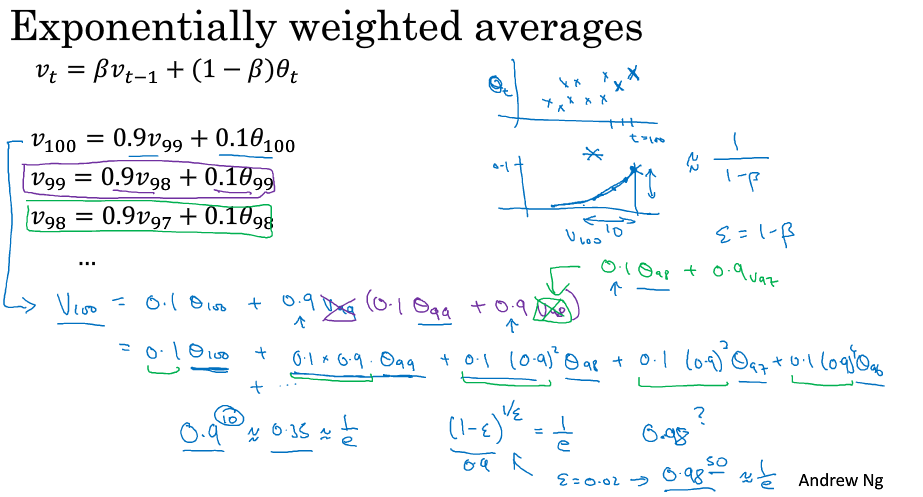 Exponentially weighted averages
v_t = βv_{t−1} + (1 − β)θ_t
v_100 = 0.9v_99 + 0.1θ_100
v_99 = 0.9v_98 + 0.1θ_99
v_98 = 0.9v_97 + 0.1θ_98
...
θ_t
t=100
0.1
V_100
10
≈ 1/(1-β)
ε = 1-β
0.1 θ_98 + 0.9 v_97
V_100 = 0.1 θ_100 + 0.9 V_99 (0.1 θ_99 + 0.9 V_98)
= 0.1 θ_100 + 0.1 × 0.9 · θ_99 + 0.1 (0.9)^2 θ_98 + 0.1 (0.9)^3 θ_97 + 0.1 (0.9)^4 θ_96
+ ...
0.9^10 ≈ 0.35 ≈ 1/e
(1-ε)^{1/ε} = 1/e
0.9
0.98^?
ε = 0.02 → 0.98^50 ≈ 1/e
Andrew Ng